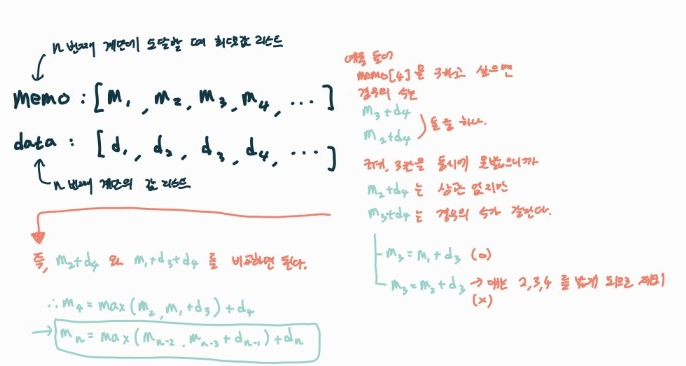 n번째 계단에 도달할 때 최댓값 리스트
memo : [m₁, m₂, m₃, m₄, ...]
data : [d₁, d₂, d₃, d₄, ...]
n번째 계단의 값 리스트
즉, m₂+d₄ 와 m₁+d₃+d₄ 를 비교하면 된다.
∴ m₄ = max(m₂, m₁+d₃) + d₄
→ mₙ = max(mₙ₋₂, mₙ₋₃+dₙ₋₁) + dₙ
예를 들어
memo[4]을 구하고 싶으면
경우의 수는
m₃+d₄
m₂+d₄ ) 둘중 하나.
근데, 3칸을 동시에 못밟으니까
m₂+d₄ 는 상관 없지만
m₃+d₄ 는 경우의 수가 갈린다.
m₃ = m₁+d₃ (o)
m₃ = m₂+d₃ → 얘는 2,3,4 를 밟게 되므로 제외
(x)